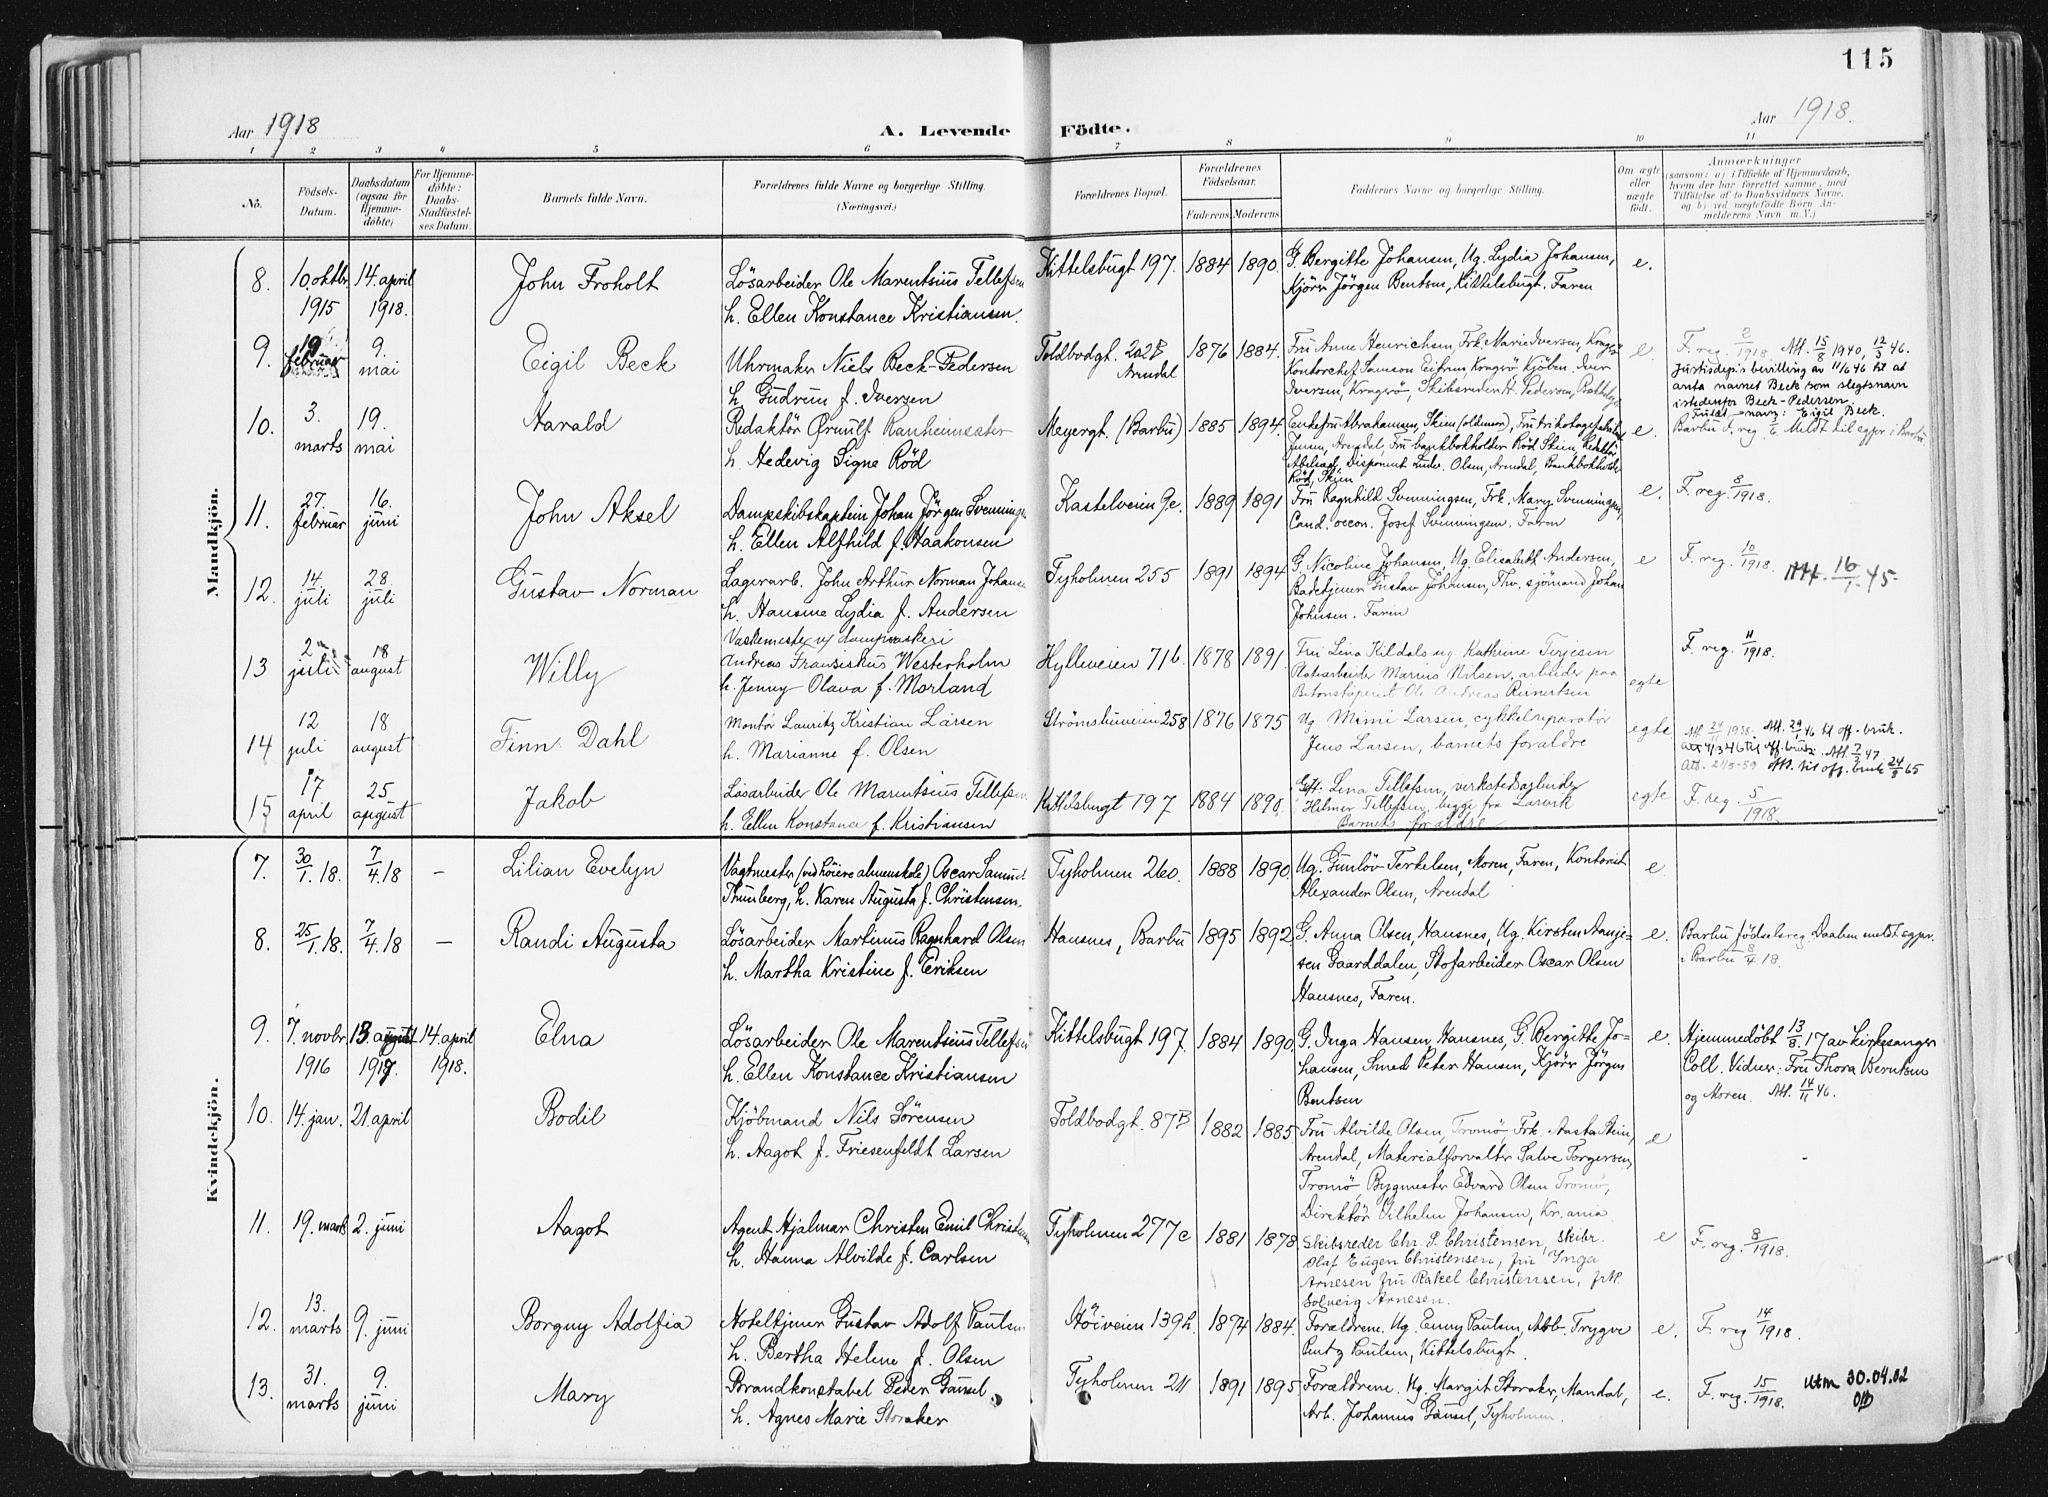 115
Aar 1918
A. Levende Födte.
Aar 1918.
1 2 3 4 5 6 7 8 9 10 11
No.
Födsels-Datum.
Daabsdatum (ogsaa for Hjemme-döbte)
For Hjemme-döbte: Daabs-Stadfæstel-ses Datum.
Barnets fulde Navn.
Forældrenes fulde Navne og borgerlige Stilling. (Næringsvei.)
Forældrenes Bopæl.
Forældrenes Födselsaar.
Faderens. Moderens.
Faddernes Navne og borgerlige Stilling.
Om ægte eller uægte födt.
Anmærkninger
(saasom: a) i Tilfælde af Hjemmedaab, hvem der har forrettet samme, med Tilföielse af to Daabsvidners Navne, og b) ved uægtefödte Börn An-melderens Navn m. V.)
Mandkjön.
8. 10. oktbr 1915 14. april 1918. John Froholt
Lösarbeider Ole Marentsius Tellefsen
h. Ellen Konstance Kristiansen.
Kittelsbugt 197. 1884 1890.
G. Bergitte Johansen, Ug. Lydia Johansen,
Kjörer Jörgen Bentsen, Kittelsbugt. Faren
e.
9. 19 februar 9. mai Eigil Beck
Uhrmaker Niels Beck-Pedersen
h. Gudrun f. Iversen
Toldbodgt. 202B Arendal 1876 1884.
Fru Anne Henrichsen, Frk. Marie Iversen, Kragerö
Kontorchef Samson Eifrem, Kragerö, Kjöbm. Iver
Iversen, Kragerö, Skibsreder H. Pedersen,
e.
F. reg. 2/1918. Att. 15/8 1940, 12/3 46.
Justisdep's bevilling av 11/6 46 til at
anta navnet Beck som slegtsnavn
istedenfor Beck-Pedersen.
navn: Eigil Beck.
10. 3. marts 19. mai Harald
Redaktör Ørnulf Ranheimsæter
h. Hedevig Signe Röd
Meyergt. (Barbu) 1885 1894.
Enkefru Abrahamsen, Skien (oldemor), Fru
Juun, Arendal, Fru bankbokholder Röd Skien, Redaktör
Disponent Ludv. Olsen, Arendal, Bankbokholder
Röd, Skien
e.
Barbu F. reg. Meldt til sgpr. i Barbu
11. 27. februar 16. juni John Aksel
Dampskibskaptein Johan Jörgen Svenningsen
h. Ellen Alfhild f. Haakonsen
Kastelveien 9c. 1889 1891
Fru Ragnhild Svenningsen, Frk. Mary Svenningsen,
Cand. oecon. Josef Svenningsen. Faren
e. F. reg. 8/1918.
12. 14. juli 28. juli Gustav Norman
Lagerarb. John Arthur Norman Johansen
h. Hansine Lydia f. Andersen
Tyholmen 255 1891 1894
G. Nicoline Johansen, Ug. Elisabeth Andersen,
Badetjener Gustav Johansen, Fhv. sjömand Johan
Johnsen. Faren
e F. reg. 10/1918. Att. 16/1 45.
13 2 juli 18 august Willy
Vaskemester v/ dampvaskeri
Andreas Fransiskus Westerholm
h. Jenny Olava f. Morland
Hylleveien 71b. 1878 1891.
Fru Lina Kildals ug Kathrine Terjesen
Platearbeider Marius Nilsen, arbeider paa
Betonstöperiet Ole Andreas Reinertsen
egte F. reg. 11/1918.
14 12 juli 18 august Finn Dahl
Montör Lauritz Kristian Larsen
h. Marianne f. Olsen
Strömsbuveien 258 1876 1875
Ug. Mimi Larsen, cykkelreparatör
Jens Larsen, barnets foraldre
egte Att. 24/11 1938. Att. 29/1 46 til off. bruk.
Att 4/3 46 til off. bruk. Att. 7/2 47
Att. 21/5-59 Att. til off. bruk 24/9 65
15 17 april 25 august Jakob
Lösarbeider Ole Marentsius Tellefsen
h. Ellen Konstance f. Kristiansen
Kittelsbugt 197 1884 1890.
Gift. Lina Tellefsen, verkstedsarbeider
Hilmar Tellefsen, begge fra Larvik
Barnets foraldre
egte F. reg. 5/1918.
Kvindekjön.
7. 30/1. 18. 7/4. 18 – Lilian Evelyn
Vagtmester (ved höiere almenskole) Oscar Samuel
Thunberg, h. Karen Augusta f. Christensen.
Tyholmen 260. 1888 1890.
Ug. Gunlöv Terkelsen, Moren, Faren, Kontorist
Alexander Olsen, Arendal
e
8. 25/1. 18. 7/4. 18 – Randi Augusta
Lösarbeider Martinius Ragnhard Olsen
h. Martha Kristine f. Eriksen
Hansnes, Barbu 1895 1892.
G. Anna Olsen, Hansnes, Ug. Kirsten Aanje-
sen Gaarddalen, Stofarbeider Oscar Olsen
Hansnes, Faren.
e. Barbu födselsreg. Daaben meldt sgpr.
i Barbu 8/4. 18.
9. 7. novbr. 1916 13. august 1917. 14. april 1918. Elna
Lösarbeider Ole Marentsius Tellefsen
h. Ellen Konstance Kristiansen
Kittelsbugt 197. 1884 1890.
G. Inga Hansen, Hansnes, G. Bergitte Jo-
hansen, Smed Peter Hansen, Kjörer Jörgen
Bentsen
e. Hjemmedöbt 13/8. 17 av kirkesanger
Coll. Vidner: Fru Thora Berntsen
og Moren. Att. 14/11 46.
10. 14. jan. 21. april Bodil
Kjöbmand Nils Sörensen
h. Aagot f. Friesenfeldt Larsen
Toldbodgt. 87B 1882 1885.
Fru Alvilde Olsen, Tromö, Frk. Aasta Stein,
Arendal, Materialforvalter Salve Torgersen,
Tromö, Bygmester Edvard Olsen Tromö,
Direktör Vilhelm Johansen, Kr.ania
e
11. 19. marts 2. juni Aagot
Agent Hjalmar Christen Emil Christensen
h. Hanna Alvilde f. Carlsen
Tyholmen 277c 1881 1878.
Skibsreder Chr. S. Christensen, skibr.
Olaf Eugen Christensen, fru Inga
Arnesen fru Rakel Christensen, frk.
Solveig Arnesen.
e F. reg. 8/1918.
12. 13. marts 9. juni Borgny Adolfia
Hoteltjener Gustav Adolf Paulsen
h. Bertha Helene f. Olsen
Höiveien 139h. 1874 1884.
Forældrene. Ug. Enny Paulsen, Arb. Trygve
Paulsen, Kittelsbugt.
e. F. reg. 14/1918.
13. 31. marts 9. juni Mary
Brandkonstabel Peder Gausel
h. Agnes Marie Storaker
Tyholmen 211 1891 1895
Forældrene. Ug. Margit Storaker, Mandal,
Arb. Johannes Gausel, Tyholmen
e. F. reg. 15/1918. utm 30.04.02